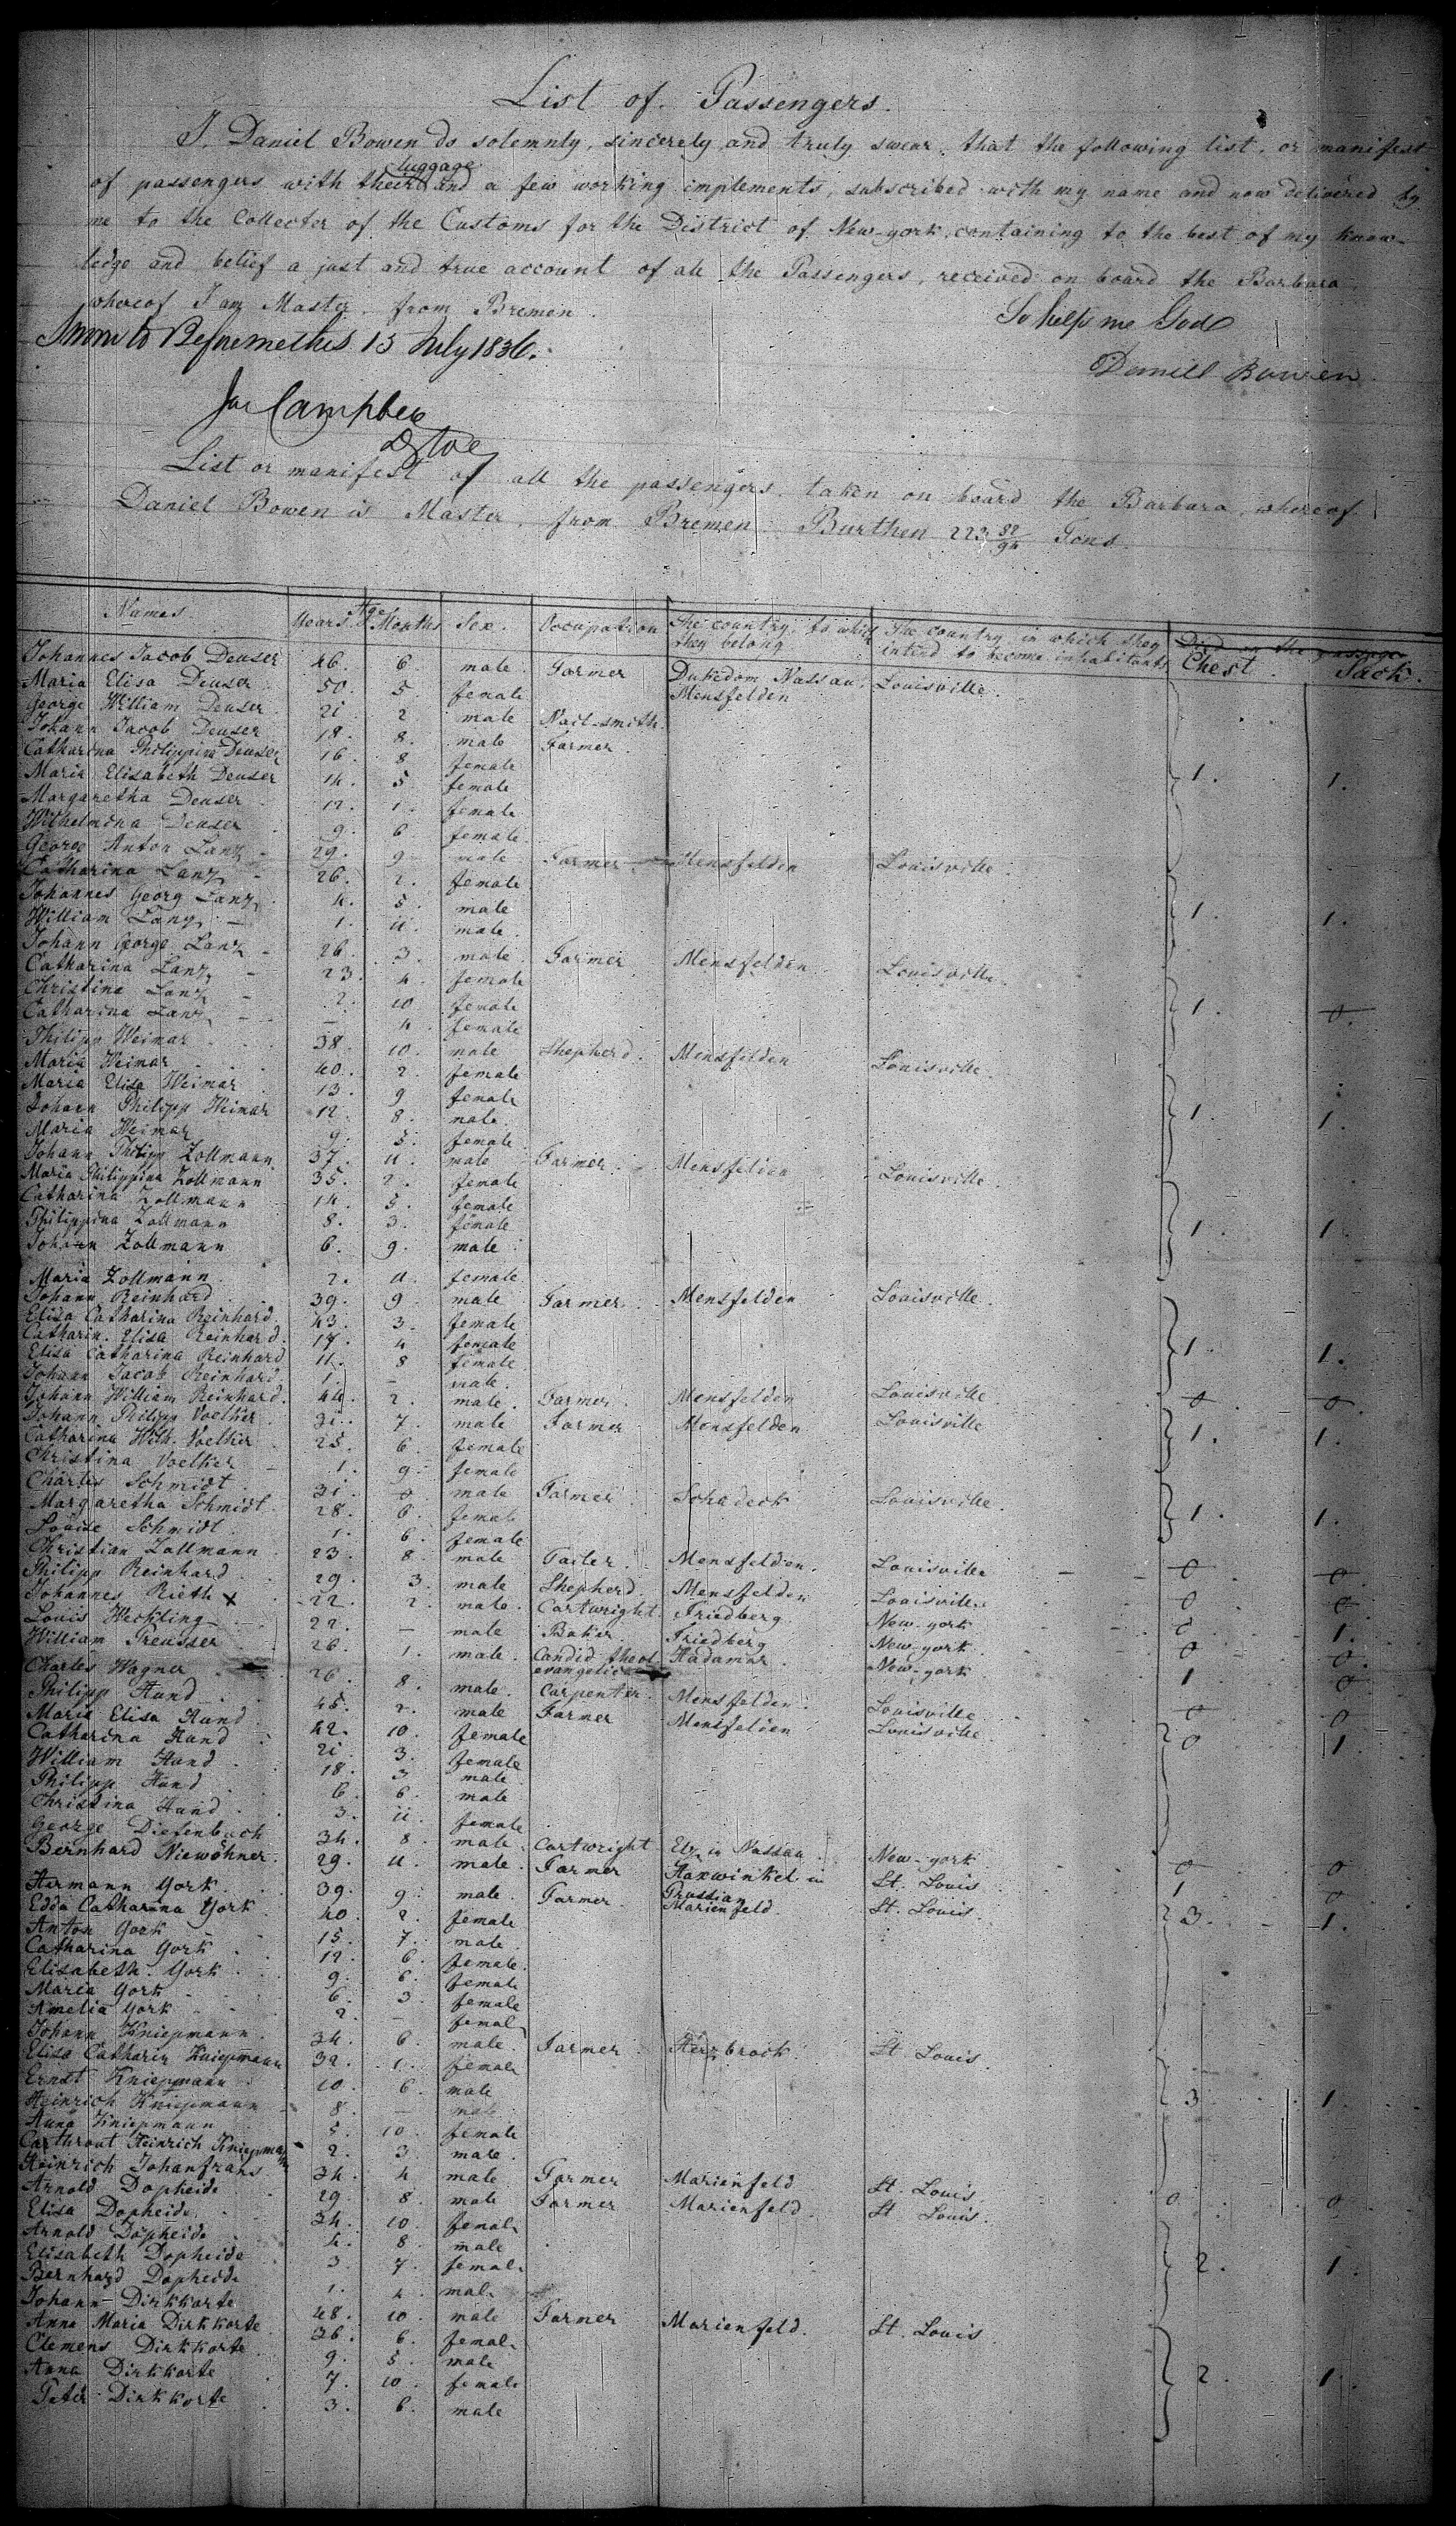 List of Passengers.
I, Daniel Bowen do solemnly, sincerely and truly swear, that the following list, or manifest
luggage
of passengers with their and a few working implements, subscribed with my name and now delivered by
me to the Collecter of the Customs for the District of New-york, containing to the best of my know-
ledge and belief a just and true account of all the Passengers, received on board the Barbara
whereof I am Master from Bremen.
So help me God
Sworn to Before me this 15 July 1836.
Daniel Bowen
Campbell
List or manifest of all the passengers taken on board the Barbara, whereof
Daniel Bowen is Master, from Bremen Burthen 223 82/94 Tons.
Names. Age Years. Months Sex. Occupation The country to which they belong The country in which they intend to become inhabitants Died on the passage Chest. Sack.
Johannes Jacob Deuser 46. 6. male Farmer Dukedom Nassau, Louisville.
Maria Elisa Deuser 50. 5 female Mensfelden
George William Deuser 21 2. male Nail-smith.
Johann Jacob Deuser 18. 8. male Farmer.
Catharina Philippina Deuser 16. 8 female
Maria Elisabeth Deuser 14. 5 female 1. 1.
Margaretha Deuser 12. 1. female
Wilhelmina Deuser 9. 6 female
George Anton Lanz 29. 9 male Farmer Mensfelden Louisville.
Catharina Lanz 26. 2. female
Johannes Georg Lanz 4. 5 male
William Lanz 1. 11. male 1. 1.
Johann George Lanz 26. 3. male Farmer Mensfelden Louisville.
Catharina Lanz 23. 4. female
Christina Lanz 2. 10 female
Catharina Lanz — 4. female 1. 0.
Philipp Weimar 38. 10. male Shepherd. Mensfelden Louisville.
Maria Weimar 40. 2. female
Maria Elisa Weimar 13. 9 female
Johann Philipp Weimar 12. 8. male 1. 1.
Maria Weimar 9. 5. female
Johann Philipp Zollmann 37. 11. male Farmer. Mensfelden Louisville.
Maria Philippina Zollmann 35. 2. female
Catharina Zollmann 14. 5. female
Philippina Zollmann 8. 3. female 1. 1.
Johann Zollmann 6. 9. male
Maria Zollmann 2. 11. female
Johann Reinhard 39. 9 male Farmer. Mensfelden Louisville.
Elisa Catharina Reinhard 43. 3. female
Catharin. Elisa Reinhard. 17. 4 female
Elisa Catharina Reinhard 11. 8 female 1. 1.
Johann Jacob Reinhard 1. — male
Johann William Reinhard. 44. 2. male. Farmer. Mensfelden Louisville 0 0
Johann Philipp Voelker 31. 7. male Farmer Mensfelden Louisville
Catharina Wilh. Voelker 25. 6. female 1. 1.
Christina Voelker 1. 9. female
Charles Schmidt 31. 0 male Farmer Schadeck Louisville.
Margaretha Schmidt 28. 6. female 1. 1.
Louise Schmidt 1. 6. female
Christian Zollmann 23. 8. male Tailer. Mensfelden. Louisville 0 0
Philipp Reinhard 29. 3. male Shepherd. Mensfelden Louisville. 0 0
Johannes Rieth x 22. 2. male. Cartwright. Friedberg New-york 1.
Louis Weckling 22. — male Baker. Friedberg New-york. 0 0
William Preusser 26. 1. male. Candid. theol. evangelic Hadamar. New-york 1 0
Charles Wagner 26. 8. male. Carpenter. Mensfelden. Louisville 0 0
Philipp Hund 45. 2. male Farmer Mensfelden Louisville 0 1
Maria Elisa Hund 42. 10. female
Catharina Hund 21. 3. female
William Hund 18. 3 male
Philipp Hund 6 6. male
Christina Hund 3. 11. female
George Diefenbach 34. 8. male. Cartwright Elz in Nassau New-york 0 0
Bernhard Niewöhner 29. 11. male. Farmer Haxwinkel in Prussian St. Louis 1 0
Hermann York 39. 9. male Farmer. Marienfeld St. Louis. 3. 1.
Edda Catharina York 40. 2. female
Anton York 15. 7. male
Catharina York 12 6. female
Elisabeth York 9. 6. female
Maria York 6. 3 female
Amelia York 2. — female
Johann Kniepmann 34. 6. male Farmer Herzbrock St. Louis.
Elisa Catharin Kniepmann 32. 1. female
Ernst Kniepmann 10. 6. male
Heinrich Kniepmann 8. — male 3. 1.
Anna Kniepmann 5. 10. female
Heinrich Kniepmann 2. 3 male.
Heinrich Johanfrans 34. 4 male Farmer Marienfeld St. Louis 0 0
Arnold Dopheide 29 8. male Farmer Marienfeld. St Louis.
Elisa Dopheide 34. 10. female
Arnold Dopheide 4. 8. male
Elisabeth Dopheide 3 7. female 2. 1.
Bernhard Dopheide 1. 4. male
Johann Dirkkorte 48. 10. male Farmer Marienfeld. St. Louis
Anna Maria Dirkkorte 36. 6. female
Clemens Dirkkorte 9. 5. male
Anna Dirkkorte 7. 10. female 2. 1.
Peter Dirkkorte 3. 6. male